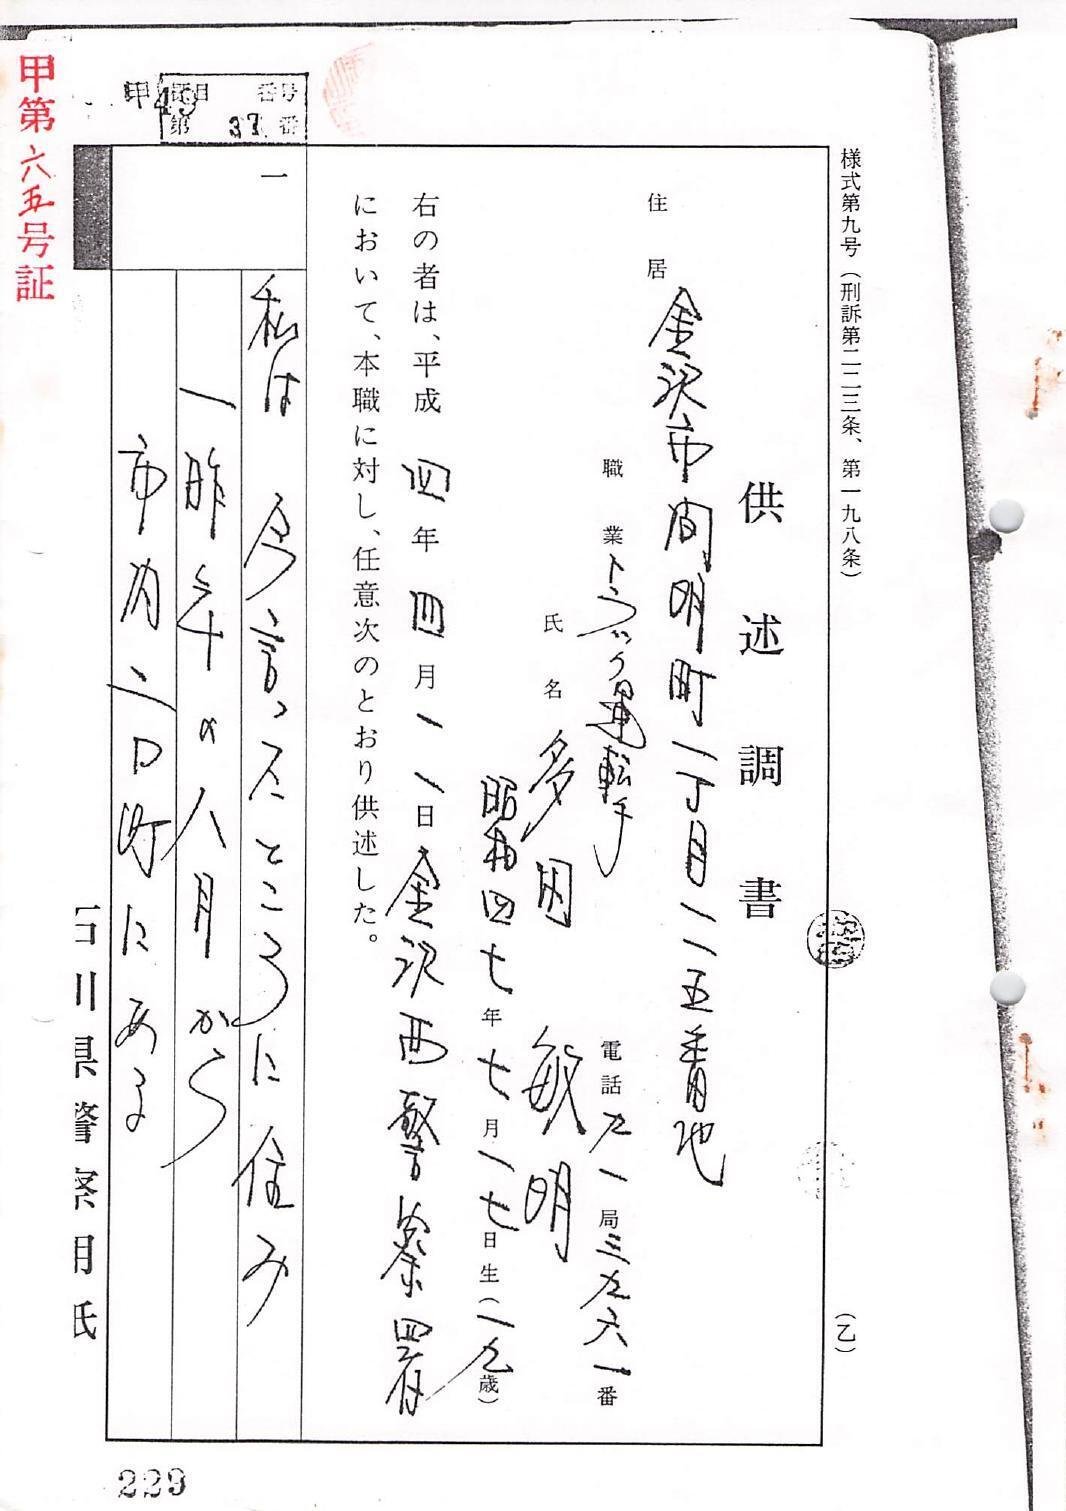 様式第九号（刑訴第二二三条、第一九八条）
（乙）
供述調書
住居 金沢市間明町一丁目一一五番地
職業 トラック運転手 電話 九一局三九六一番
氏名 多田 敏明
昭和四七年七月一七日生（一九歳）
右の者は、平成四年四月一一日金沢西警察署
において、本職に対し、任意次のとおり供述した。
一
私は 今言ったところに住み
一昨年の八月から
市内二口町にある
番号
第 37 番
甲第六五号証
石川県警察用紙
229